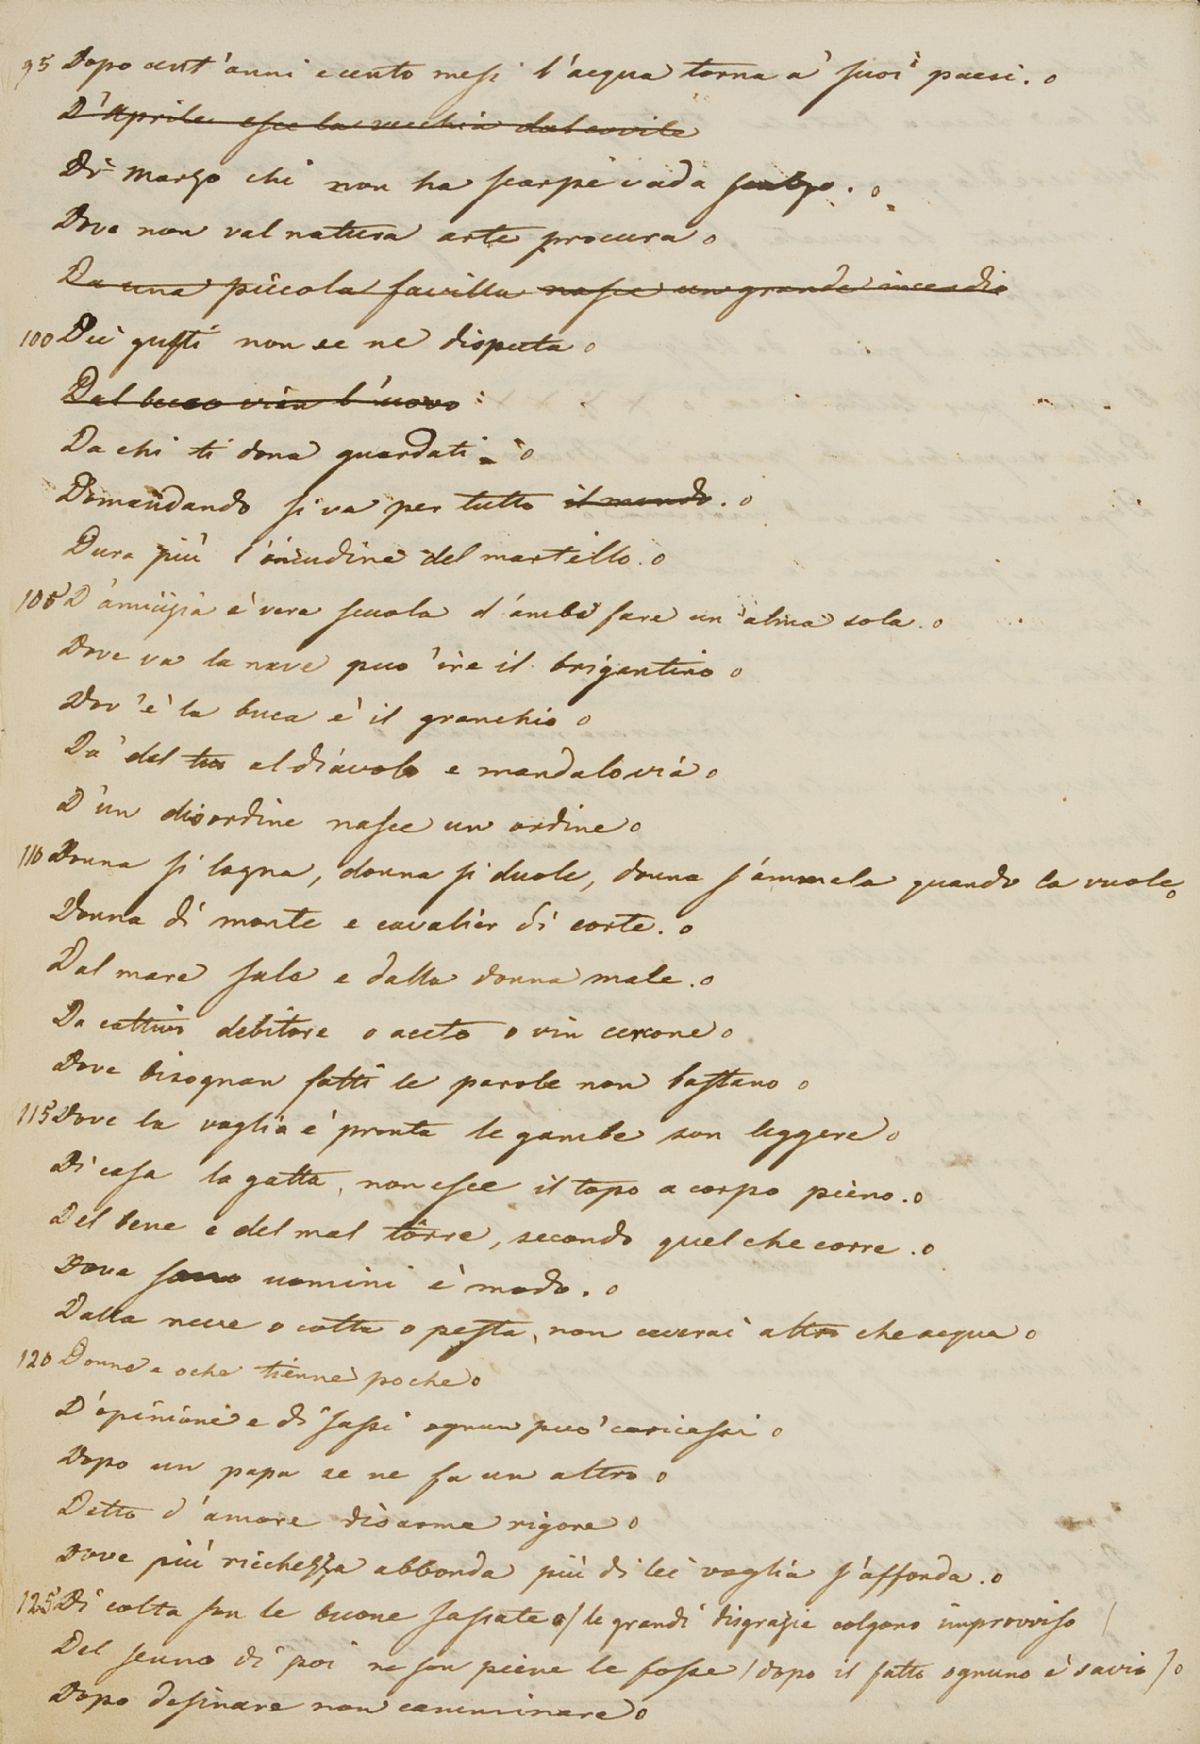 95 Dopo cent'anni e cento mesi l'acqua torna a' suoi paesi. o
D'Aprile esce la vecchia dal covile
Di marzo chi non ha scarpe vada scalzo. o
Dove non val natura arte procura o
Da una piccola favilla nasce un grande incendio
100 Dei gusti non se ne disputa o
Dal buco vien l'uovo
Da chi ti dona guardati. o
Domandando si va per tutto il mondo. o
Dura più l'incudine del martello. o
105 D'amicizia è vera scuola d'ambi fare un'alma sola. o
Dove va la nave puo' ire il brigantino o
Dov'è la buca è il granchio o
Da' del tuo al diavolo e mandalo via o
D'un disordine nasce un ordine o
110 Donna si lagna, donna si duole, donna s'ammala quando la vuole o
Donna di monte e cavalier di corte. o
Dal mare sale e dalla donna male. o
Da cattivo debitore o aceto o vin cercone o
Dove bisognan fatti le parole non bastano o
115 Dove la voglia è pronta le gambe son leggere o
Di casa la gatta, non esce il topo a corpo pieno. o
Del bene e del mal torre, secondo quel che corre. o
Dove sono uomini è modo. o
Dalla neve o cotta o pesta, non caverai altro che acqua o
120 Donne e oche tienne poche o
D'opinione e di sassi ognun puo' caricassi o
Dopo un papa se ne fa un altro o
Detto d'amore disarma rigore o
Dove più ricchezza abbonda più di lei voglia s'affonda. o
125 Di colta son le buone sassate o/ le grandi disgrazie colgono improvviso /
Del senno di poi ne son piene le fosse / dopo il fatto ognuno è savio / o
Dopo desinare non camminare o